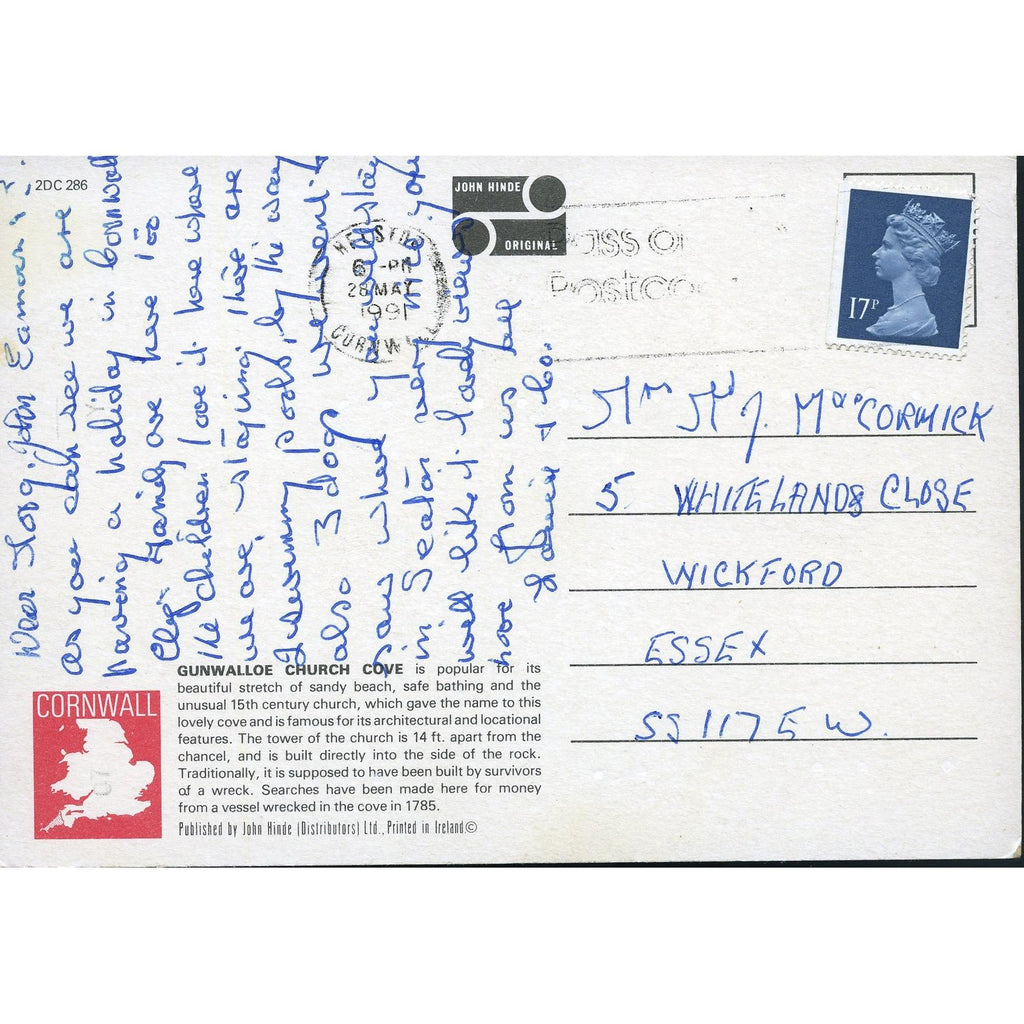 2DC 286
JOHN HINDE
ORIGINAL
HELSTON
6 -PM
28 MAY
1991
CORNWALL
Pass on
Postco
17P
Dear John Eamon
as you can see we are
having a holiday in Cornwall
family are here too
The children love it here where
we are staying there are
2 swimming pools, by the way
also 3 dog we went to
saw where you will stay
in Seaton very nice you
will like it lovely views
from us all
& Co.
Mrs M J. MacCORMICK
5 WHITELANDS CLOSE
WICKFORD
ESSEX
SS117EW.
GUNWALLOE CHURCH COVE is popular for its
beautiful stretch of sandy beach, safe bathing and the
unusual 15th century church, which gave the name to this
lovely cove and is famous for its architectural and locational
features. The tower of the church is 14 ft. apart from the
chancel, and is built directly into the side of the rock.
Traditionally, it is supposed to have been built by survivors
of a wreck. Searches have been made here for money
from a vessel wrecked in the cove in 1785.
Published by John Hinde (Distributors) Ltd., Printed in Ireland ©
CORNWALL